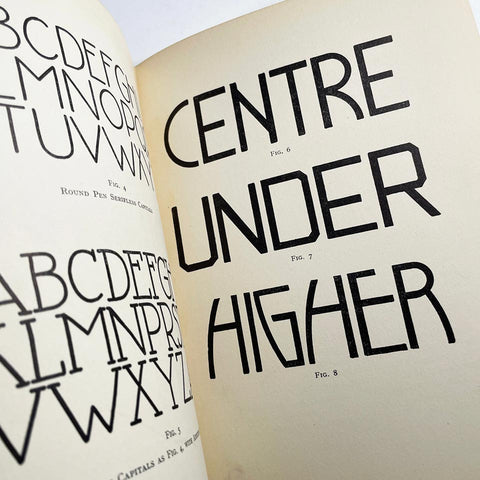 BCDEFG
LMNOPQ
TUVWX
FIG. 4
ROUND PEN SERIFLESS CAPITALS
ABCDEFG
KLMNPRS
VWXYZ
FIG. 5
CAPITALS AS FIG. 4, WITH
CENTRE
FIG. 6
UNDER
FIG. 7
HIGHER
FIG. 8